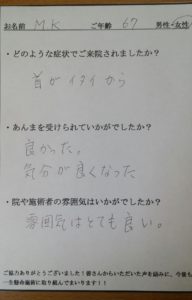 お名前 MK ご年齢 67 男性・女性
・どのような症状でご来院されましたか?
首がイタイから
・あんまを受けられていかがでしたか?
良かった。
気分が良くなった
・院や施術者の雰囲気はいかがでしたか?
雰囲気はとても良い。
ご協力ありがとうございました!皆さんからいただいた声を励みに、今後も
一生懸命施術に取り組んでまいります!!